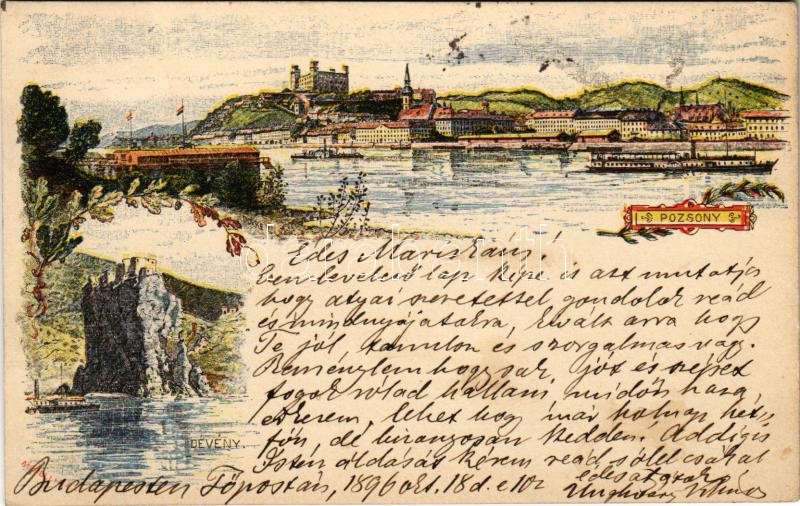 POZSONY
Édes Mariskám!
Ezen levelező lap képe is azt mutatja
hogy atyai szeretettel gondolok reád
és mindnyájatokra, kivált arra hogy
Te jól tanulsz és szorgalmas vagy.
Reménylem hogy sok jót és szépet
fogok rólad hallani midőn haza
érkezem, lehet hogy már holnap hét-
főn, de bizonyosan kedden. Addig is
Isten áldását kérem reád s ölel csókol
édes atyád
DÉVÉNY.
Budapesten Főpostán, 1896 okt. 18 d. e 10